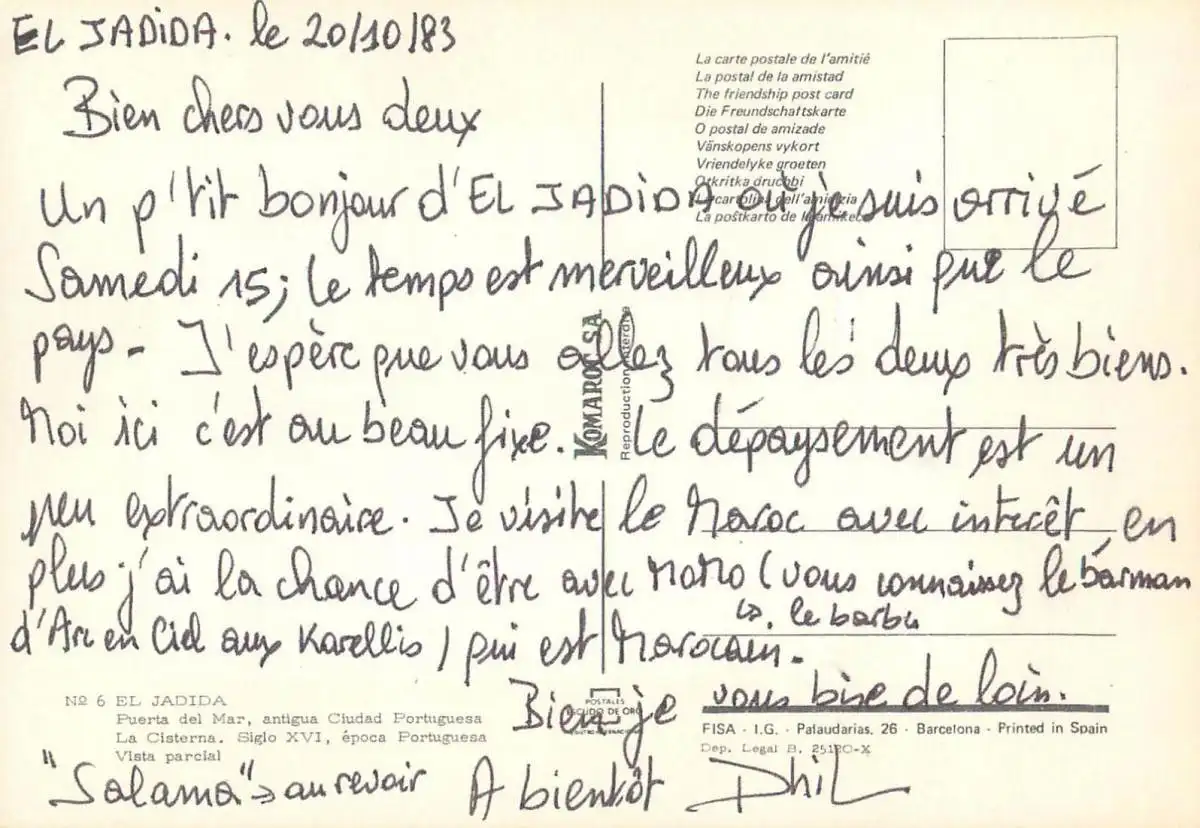 EL JADIDA. le 20/10/83
Bien chers vous deux
Un p'tit bonjour d'EL JADIDA où je suis arrivé
Samedi 15; le temps est merveilleux ainsi que le
pays - J'espère que vous allez tous les deux très biens.
Moi ici c'est au beau fixe. Le dépaysement est un
peu extraordinaire. Je visite le Maroc avec interêt en
plus j'ai la chance d'être avec MOMO (vous connaissez le barman
↳. le barbu
d'Arc en Ciel aux Karellis) qui est Marocain.
Bien je vous bise de loin.
"Salama" → au revoir A bientôt Phil
La carte postale de l'amitié
La postal de la amistad
The friendship post card
Die Freundschaftskarte
O postal de amizade
Vänskopens vykort
Vriendelyke groeten
Otkritka druchbi
La cartolina dell'amicizia
La poŝtkarto de la
KOMAROC S.A.
Reproduction interdite
Nº 6 EL JADIDA
Puerta del Mar, antigua Ciudad Portuguesa
La Cisterna. Siglo XVI, época Portuguesa
Vista parcial
POSTALES
ESCUDO DE ORO
FISA - I.G. - Palaudarias, 26 - Barcelona - Printed in Spain
Dep. Legal B. 25120-X